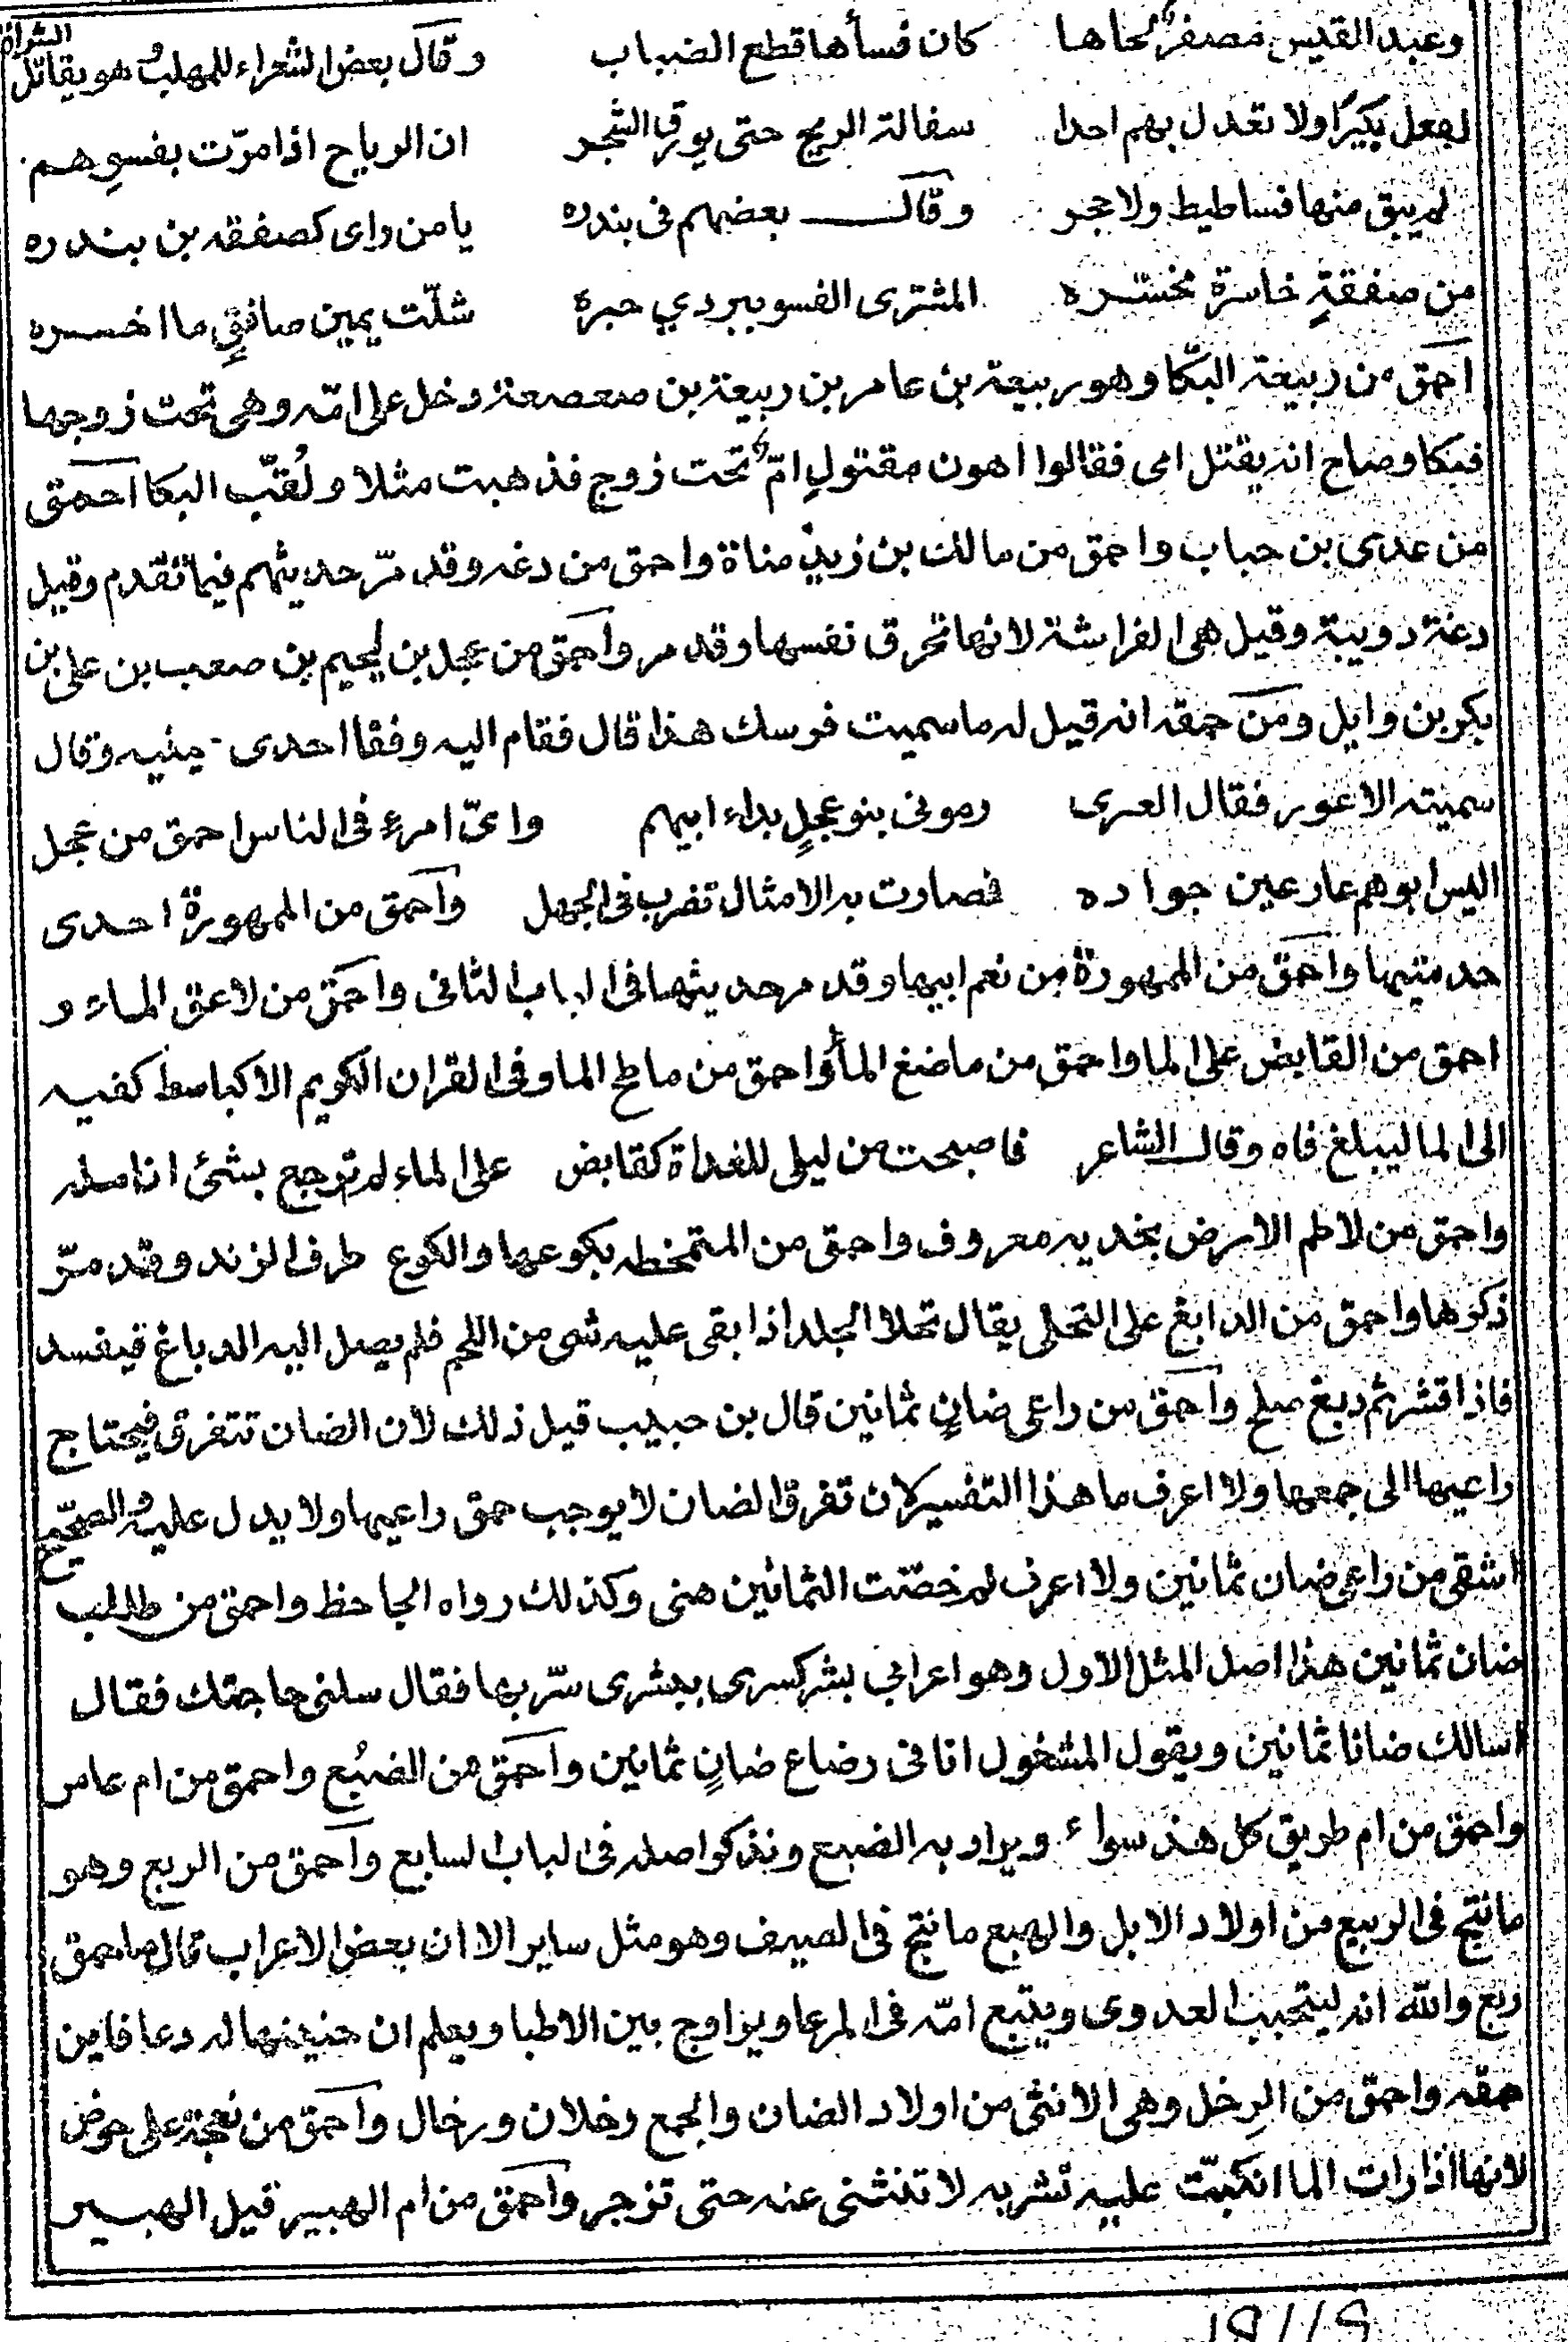 وعبد القيس مصفرٌّ لحاها كان فسأها قطع الضباب وقال بعض الشعراء للمهلب وهو يقاتل الشراة
اجعل بكيرًا ولا تعدل بهم احدا سفالة الريح حتى يورق الشجر ان الرياح اذا مرّت بفسوِهم
لم يبق منها فساطيط ولا حجر وقال بعضهم فى بندره يا من راى كصفقة بن بندره
من صفقةٍ خاسرة مخسّره المشترى الفسو ببردي حبره شلّت يمين صافقٍ ما اخسره
احمق من ربيعة البكّا وهو ربيعة بن عامر بن ربيعة بن صعصعة دخل على امّه وهى تحت زوجها
فبكا وصاح انه يقتل امى فقالوا اهون مقتولٍ امّ تحت زوج فذهبت مثلا ولُقّب البكا احمق
من عدى بن حباب واحمق من مالك بن زيد مناة واحمق من دغه وقد مرّ حديثهم فيما تقدم وقيل
دغة دويبة وقيل هى الفراشة لانها تحرق نفسها وقد مر واحمق من عجل بن لجيم بن صعب بن على بن
بكر بن وايل ومن حمقه انه قيل له ما سميت فرسك هذا قال فقام اليه وفقا احدى عينيه وقال
سميته الاعور فقال العرى رمونى بنو عجلٍ بداء ابيهم واىّ امرءٍ فى الناس احمق من عجل
اليس ابوهم عار عين جواده فصارت به الامثال تضرب فى الجهل واحمق من الممهورة احدى
خدمتيها واحمق من الممهورة من نعم ابيها وقد مر حديثها فى الباب الثانى واحمق من لاعق الماء و
احمق من القابض على الما واحمق من ماضغ الماء واحمق من ماطخ الما وفى القران الكريم الا كباسط كفيه
الى الما ليبلغ فاه وقال الشاعر فاصبحت من ليلى الغداة كقابض على الماء لم ترجع بشئ انامله
واحمق من لاطم الارض بخديه معروف واحمق من المتمخطه بكوعها والكوع طرف الزند وقد مرّ
ذكرها واحمق من الدابغ على التحلى يقال تحلا الجلد اذا بقى عليه شى من اللحم فلم يصل اليه الدباغ فيفسد
فاذا قشر ثم دبغ صلح واحمق من راعى ضانٍ ثمانين قال بن حبيب قيل ذلك لان الضان تتفرق فيحتاج
راعيها الى جمعها ولا اعرف ما هذا التفسير لان تفرق الضان لا يوجب حمق راعيها ولا يدل عليه والصحيح
اشقى من راعى ضان ثمانين ولا اعرف لم خصّت الثمانين هنى وكذلك رواه الجاحظ واحمق من طالب
ضان ثمانين هذا اصل المثل الاول وهو اعرابي بشر كسرى ببشرى سرّ بها فقال سلنى حاجتك فقال
اسالك ضانا ثمانين ويقول المشغول انا فى رضاع ضانٍ ثمانين واحمق من الضبُع واحمق من ام عامر
واحمق من ام طريق كل هذ سواء ويراد به الضبع ونذكر اصله فى الباب السابع واحمق من الربع وهو
ما نتج فى الربيع من اولاد الابل والهبع ما نتج فى الصيف وهو مثل ساير الا ان بعض الاعراب قال ما حمق
ربع والله انه ليتجنب العدوى ويتبع امّه فى المرعا ويراوج بين الاطبا ويعلم ان حنينها له دعا فاين
حمقه واحمق من الرِخل وهى الانثى من اولاد الضان والجمع رخلان ورخال واحمق من نعجة على حوض
لانها اذا رات الما انكبّت عليه تشربه لا تنثنى عنه حتى تزجر واحمق من ام الهبير قيل الهبير